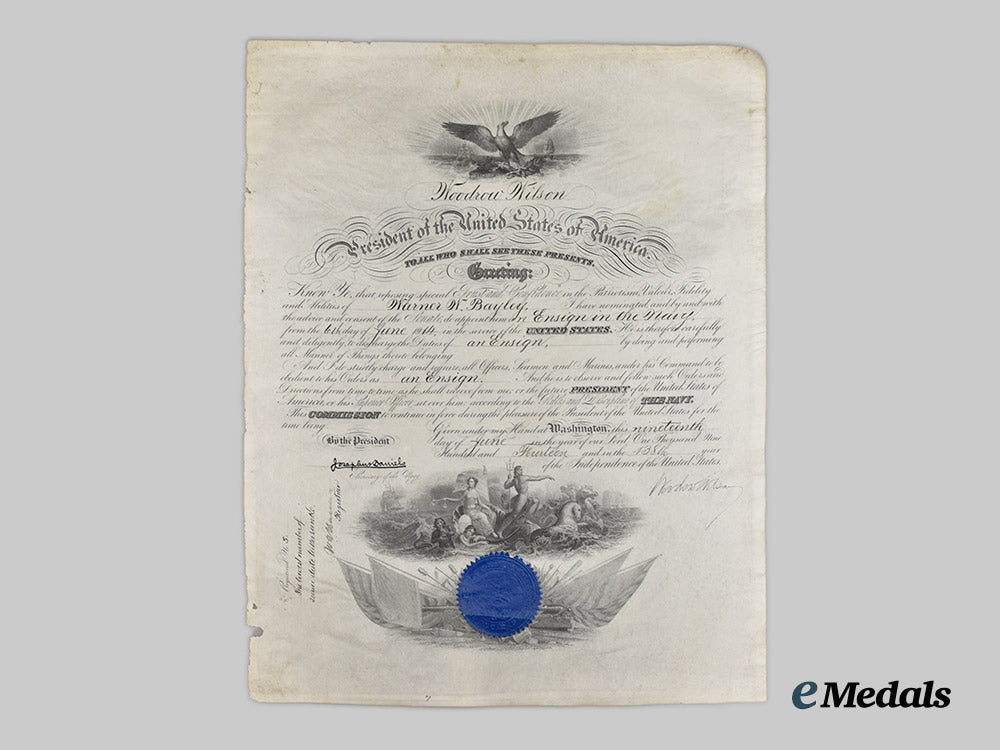 Woodrow Wilson
President of the United States of America.
TO ALL WHO SHALL SEE THESE PRESENTS,
Greeting:
Know Ye, that reposing special Trust and Confidence in the Patriotism, Valour, Fidelity
and Abilities of Warner W. Bayley, I have nominated, and by and with
the advice and consent of the Senate, do appoint him an Ensign in the Navy
from the 6th day of June 1914, in the service of the UNITED STATES. He is therefore carefully
and diligently to discharge the Duties of an Ensign, by doing and performing
all Manner of Things thereto belonging.
And I do strictly charge and require all Officers, Seamen and Marines, under his Command to be
obedient to his Orders as an Ensign. And he is to observe and follow such Orders and
Directions from time to time as he shall receive from me, or the future PRESIDENT of the United States of
America, or his Superior Officer set over him, according to the Rules and Discipline of THE NAVY.
This COMMISSION to continue in force during the pleasure of the President of the United States for the
time being.
Given under my Hand at Washington, this nineteenth
day of June in the year of our Lord One Thousand Nine
Hundred and Fourteen and in the 138th year
of the Independence of the United States.
By the President
Josephus Daniels
Secretary of the Navy.
Woodrow Wilson
Registered No 3.
number of
same date
Registrar
eMedals